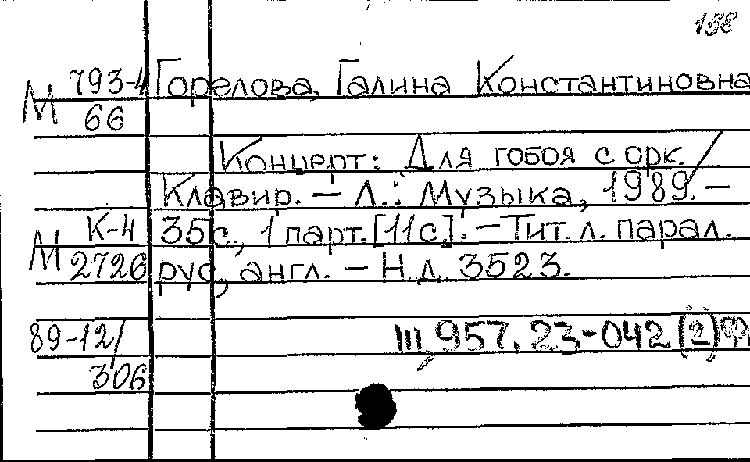 138
М 793-4 Горелова, Галина Константиновна
66
Концерт: Для гобоя с орк. /
Клавир. – Л.: Музыка, 1989. –
М К-4 35с., 1 парт. [11с.]. – Тит. л. парал.
2726 рус., англ. – Н.д. 3523.
89-12/ Щ957.23-042(2)
306